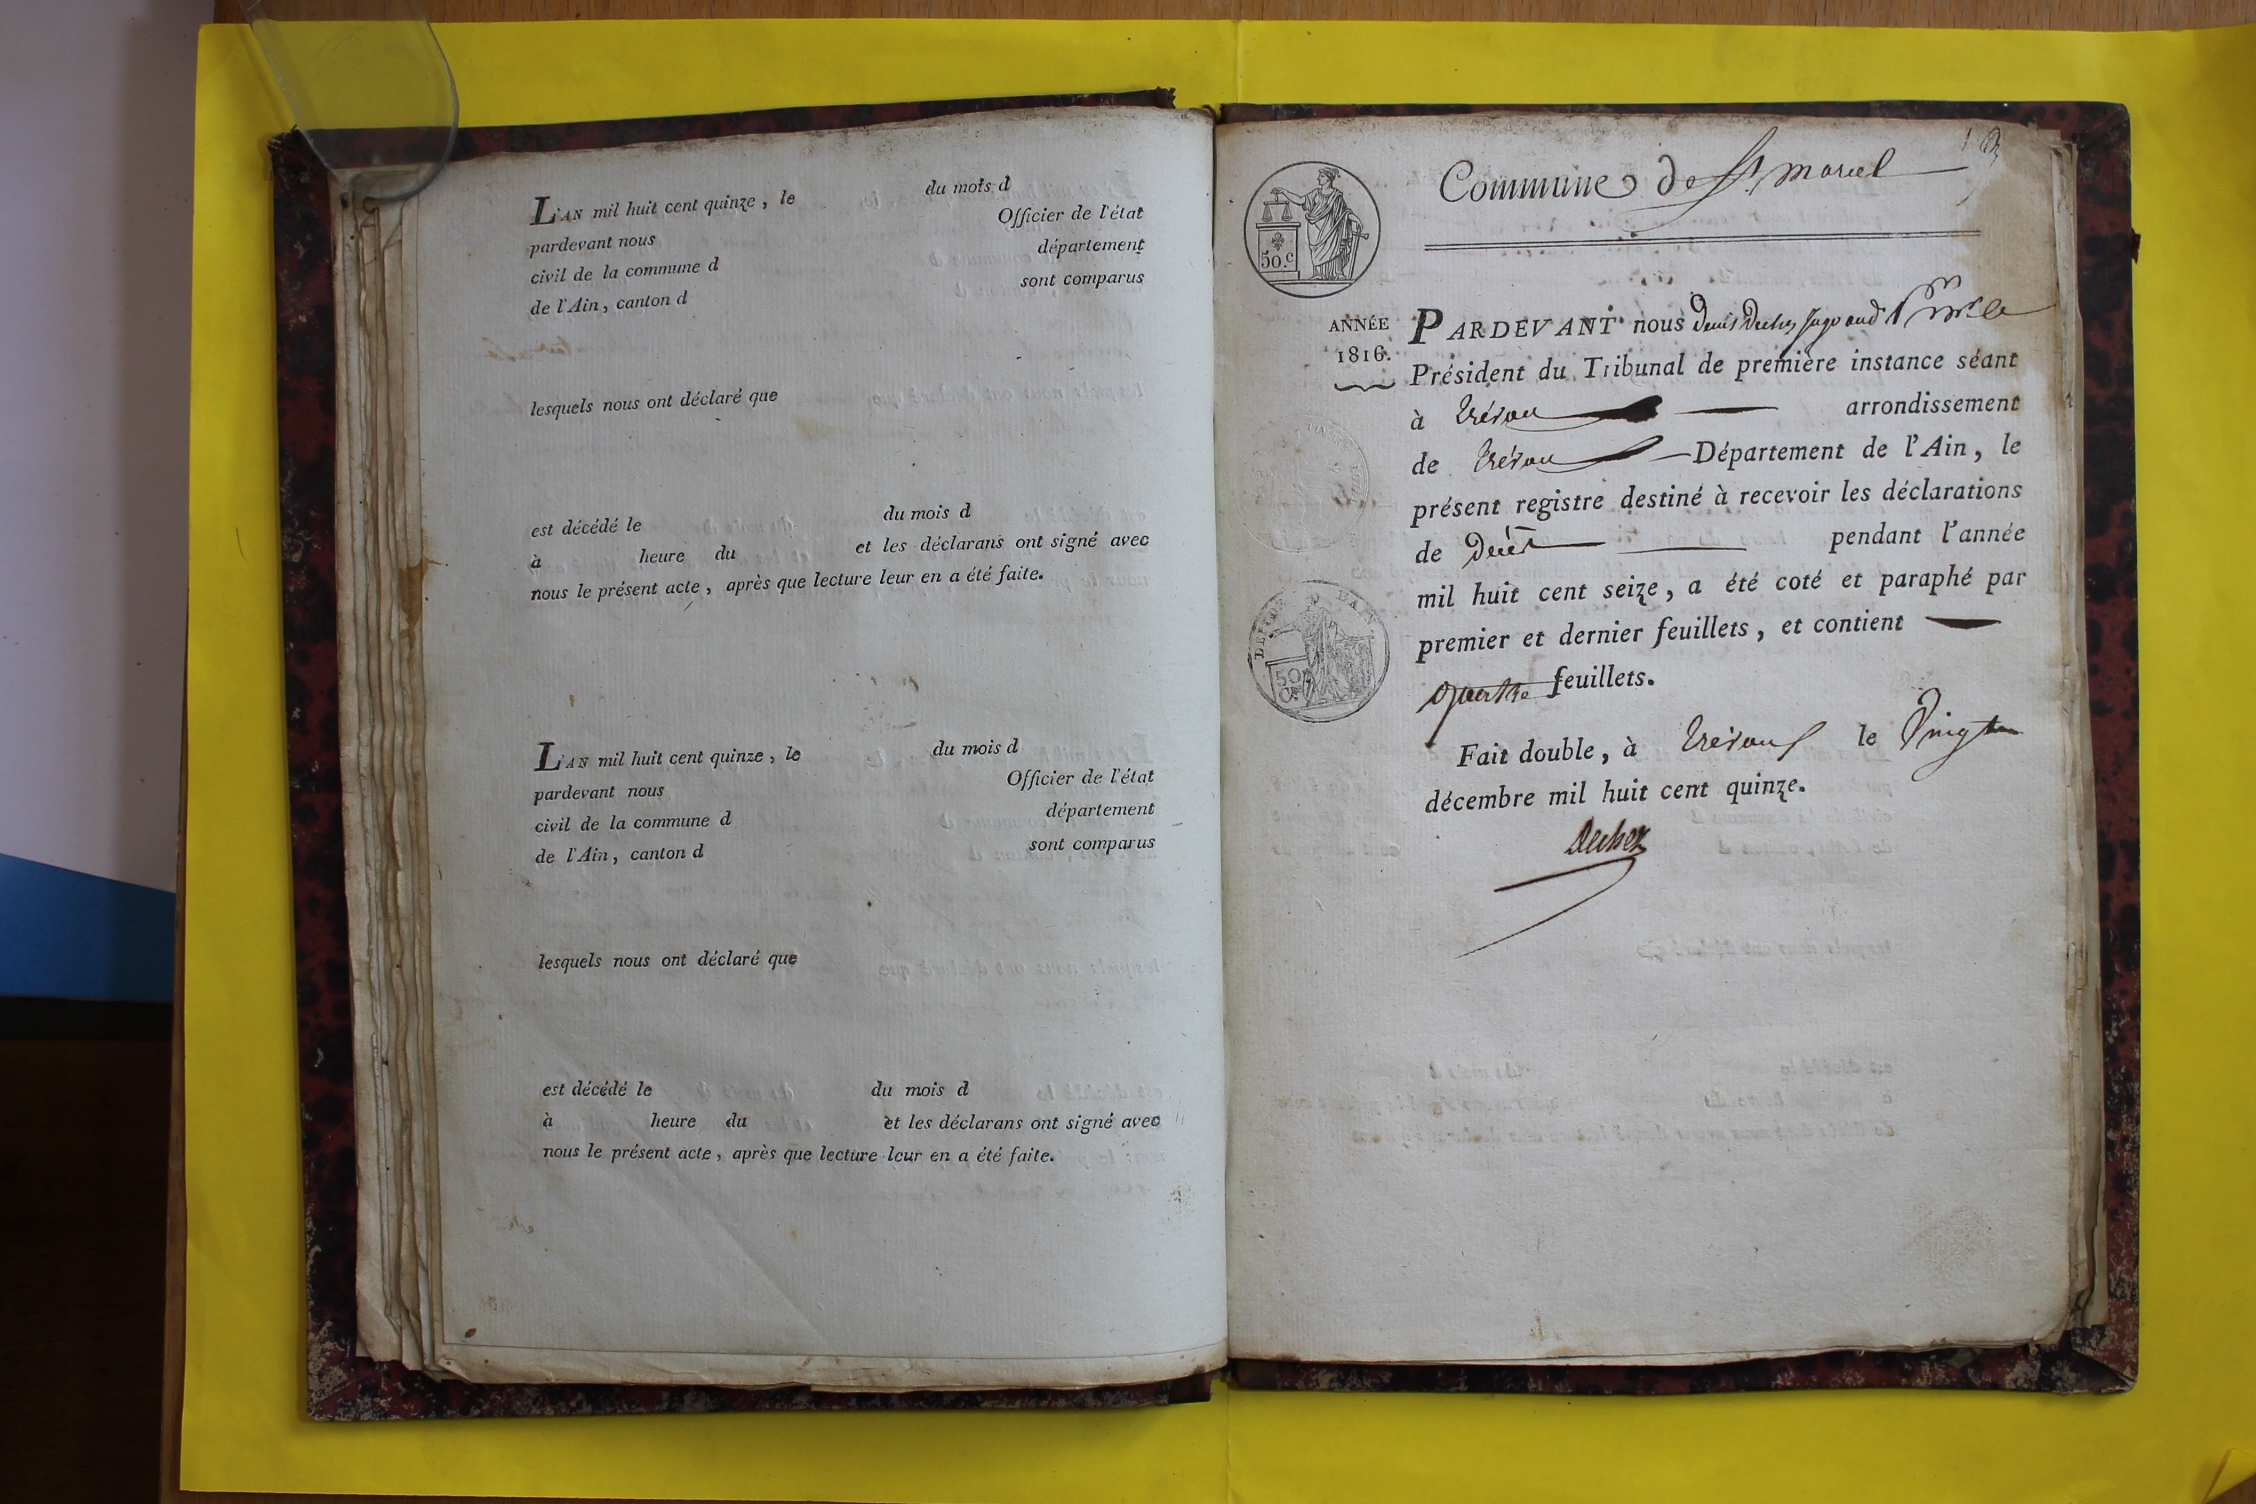 L'AN mil huit cent quinze, le du mois d
pardevant nous Officier de l'état
civil de la commune d département
de l'Ain, canton d sont comparus
lesquels nous ont déclaré que
est décédé le du mois d
à heure du et les déclarans ont signé avec
nous le présent acte, après que lecture leur en a été faite.
L'AN mil huit cent quinze, le du mois d
pardevant nous Officier de l'état
civil de la commune d département
de l'Ain, canton d sont comparus
lesquels nous ont déclaré que
est décédé le du mois d
à heure du et les déclarans ont signé avec
nous le présent acte, après que lecture leur en a été faite.
Commune de St marcel
50.c
ANNÉE
1816.
PARDEVANT nous Denis Dechez Juge
Président du Tribunal de première instance séant
à trévoux arrondissement
de trévoux Département de l'Ain, le
présent registre destiné à recevoir les déclarations
de Décès pendant l'année
mil huit cent seize, a été coté et paraphé par
premier et dernier feuillets, et contient
quatre feuillets.
50
C.
Fait double, à trévoux le Vingt
décembre mil huit cent quinze.
Dechez